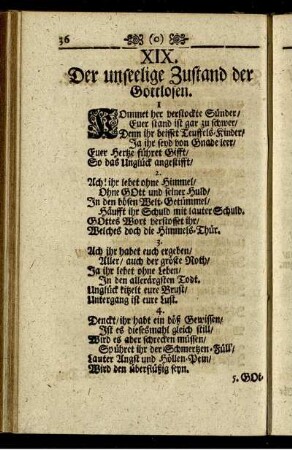 36 (o)
XIX.
Der unseelige Zustand der
Gottlosen.
1
KOmmet her verstockte Sünder/
Euer stand ist gar zu schwer/
Denn ihr heisset Teuffels-Kinder/
Ja ihr seyd von Gnade leer/
Euer Hertze führet Gifft/
So das Unglück angestifft/
2.
Ach! ihr lebet ohne Himmel/
Ohne GOtt und seiner Huld/
In den bösen Welt-Getümmel/
Häufft ihr Schuld mit lauter Schuld.
GOttes Wort verstosset ihr/
Welches doch die Himmels-Thür.
3.
Ach ihr habet euch ergeben/
Aller/ auch der gröste Noth/
Ja ihr lebet ohne Leben/
In den allerärgsten Todt.
Unglück kitzelt eure Brust/
Untergang ist eure Lust.
4.
Denckt/ ihr habt ein böß Gewissen/
Ist es diesesmahl gleich still/
Wird es aber schrecken müssen/
Spühret ihr der Schmertzen-Füll/
Lauter Angst und Höllen-Pein/
Wird den überflüßig seyn.
5. GOt-